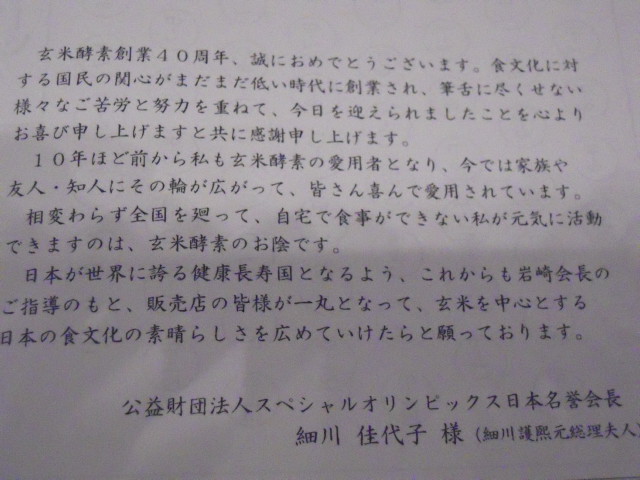 玄米酵素創業４０周年、誠におめでとうございます。食文化に対
する国民の関心がまだまだ低い時代に創業され、筆舌に尽くせない
様々なご苦労と努力を重ねて、今日を迎えられましたことを心より
お喜び申し上げますと共に感謝申し上げます。
１０年ほど前から私も玄米酵素の愛用者となり、今では家族や
友人・知人にその輪が広がって、皆さん喜んで愛用されています。
相変わらず全国を廻って、自宅で食事ができない私が元気に活動
できますのは、玄米酵素のお陰です。
日本が世界に誇る健康長寿国となるよう、これからも岩崎会長の
ご指導のもと、販売店の皆様が一丸となって、玄米を中心とする
日本の食文化の素晴らしさを広めていけたらと願っております。
公益財団法人スペシャルオリンピックス日本名誉会長
細川 佳代子 様（細川護熙元総理夫人）